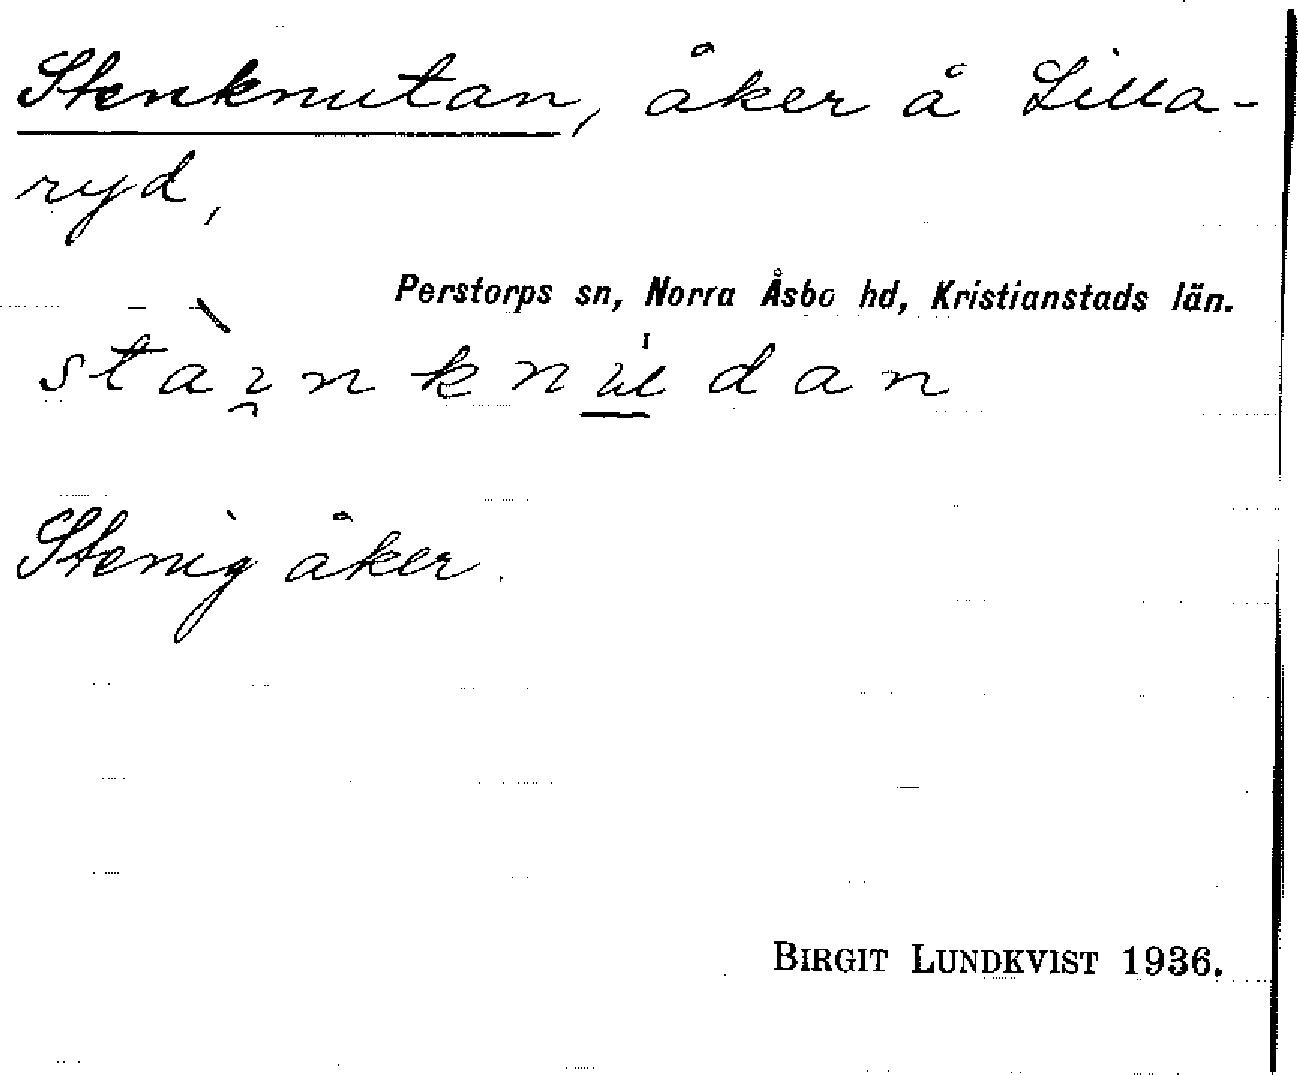 Stenknutan, åker å Lilla-
ryd,
Perstorps sn, Norra Åsbo hd, Kristianstads län.
Stenig åker.
BIRGIT LUNDKVIST 1936.